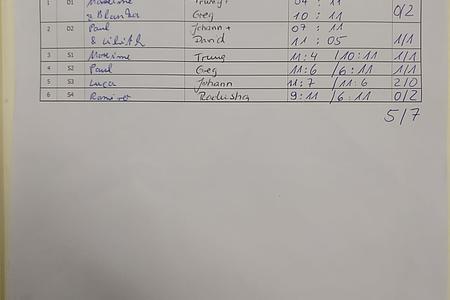 1 D1 Maxime Trung + 04 : 11
& Blanka Greg 10 : 11 0/2
2 D2 Paul Johann + 07 : 11
& David 11 : 05 1/1
3 S1 Maxime Trung 11:4 /10:11 1/1
4 S2 Paul Greg 11:6 /6:11 1/1
5 S3 Luca Johann 11:7 /11:6 2/0
6 S4 9:11 /6:11 0/2
5/7